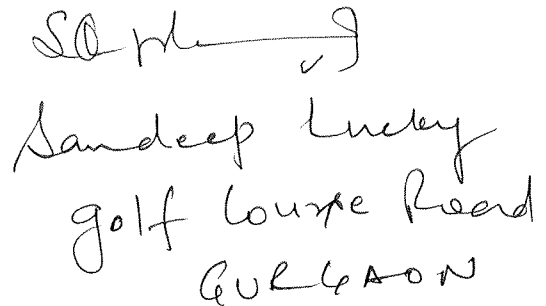 Sandeep Lucky
golf Course Road
GURGAON